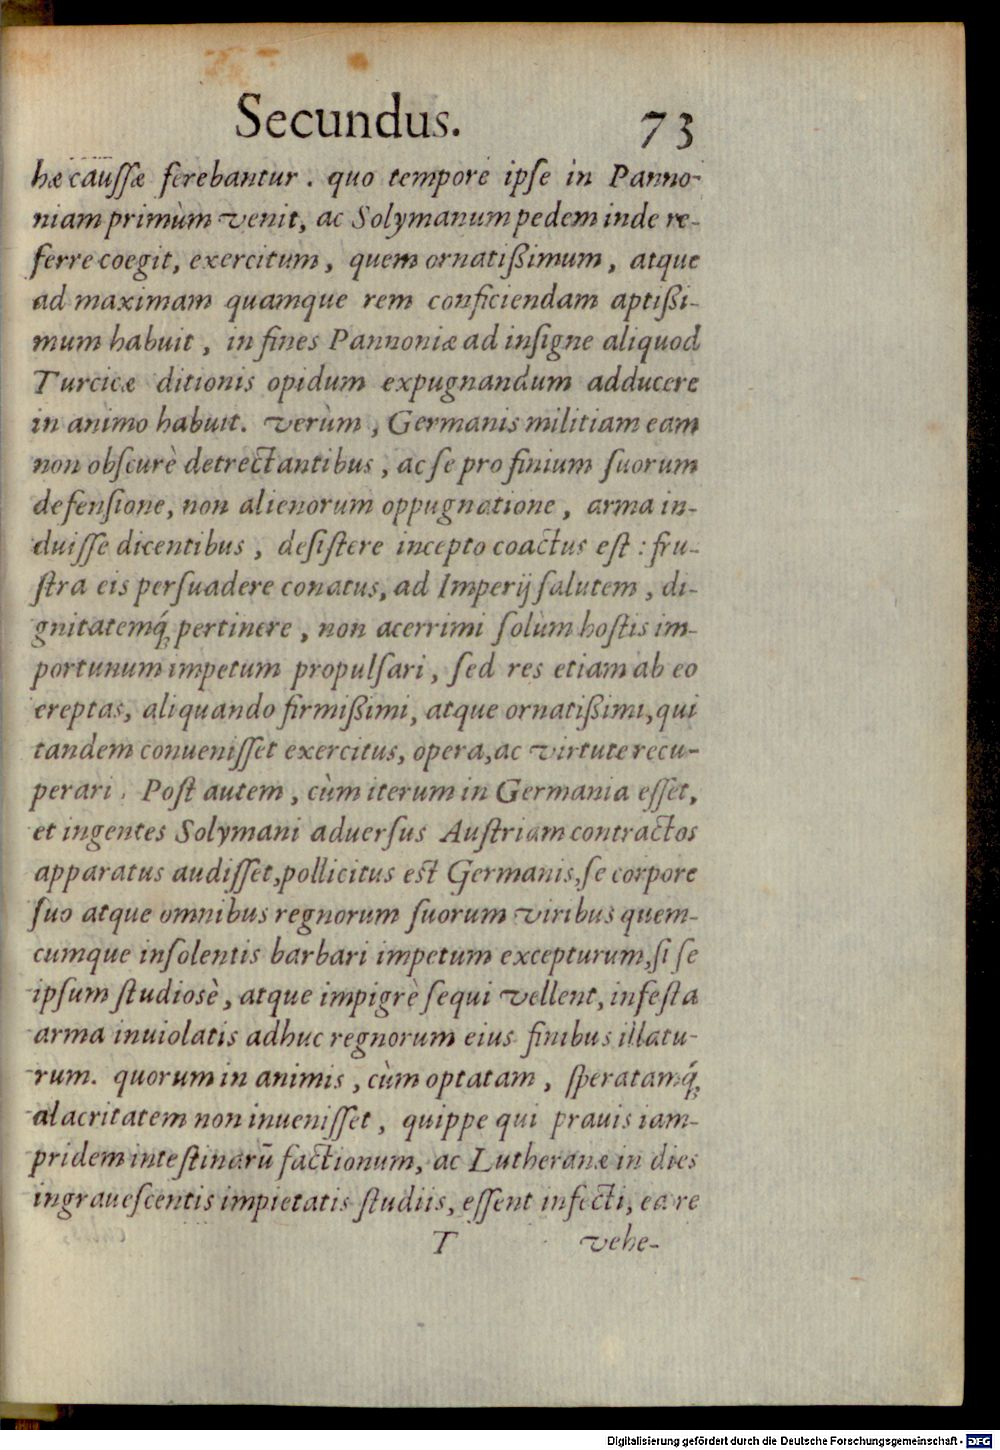 Secundus. 73
hæ caussæ ferebantur. quo tempore ipse in Panno-
niam primùm venit, ac Solymanum pedem inde re-
ferre coegit, exercitum, quem ornatißimum, atque
ad maximam quamque rem conficiendam aptißi-
mum habuit, in fines Pannoniæ ad insigne aliquod
Turcicæ ditionis opidum expugnandum adducere
in animo habuit. verùm, Germanis militiam eam
non obscurè detrectantibus, ac se pro finium suorum
defensione, non alienorum oppugnatione, arma in-
duisse dicentibus, desistere incepto coactus est: fru-
stra eis persuadere conatus, ad Imperij salutem, di-
gnitatemq́; pertinere, non acerrimi solùm hostis im-
portunum impetum propulsari, sed res etiam ab eo
ereptas, aliquando firmißimi, atque ornatißimi, qui
tandem conuenisset exercitus, opera, ac virtute recu-
perari. Post autem, cùm iterum in Germania esset,
et ingentes Solymani aduersus Austriam contractos
apparatus audisset, pollicitus est Germanis, se corpore
suo atque omnibus regnorum suorum viribus quem-
cumque insolentis barbari impetum excepturum, si se
ipsum studiosè, atque impigrè sequi vellent, infesta
arma inuiolatis adhuc regnorum eius finibus illatu-
rum. quorum in animis, cùm optatam, speratamq́;
alacritatem non inuenisset, quippe qui prauis iam-
pridem intestinarū factionum, ac Lutheranæ in dies
ingrauescentis impietatis studiis, essent infecti, ea re
T vehe-
Digitalisierung gefördert durch die Deutsche Forschungsgemeinschaft - DFG